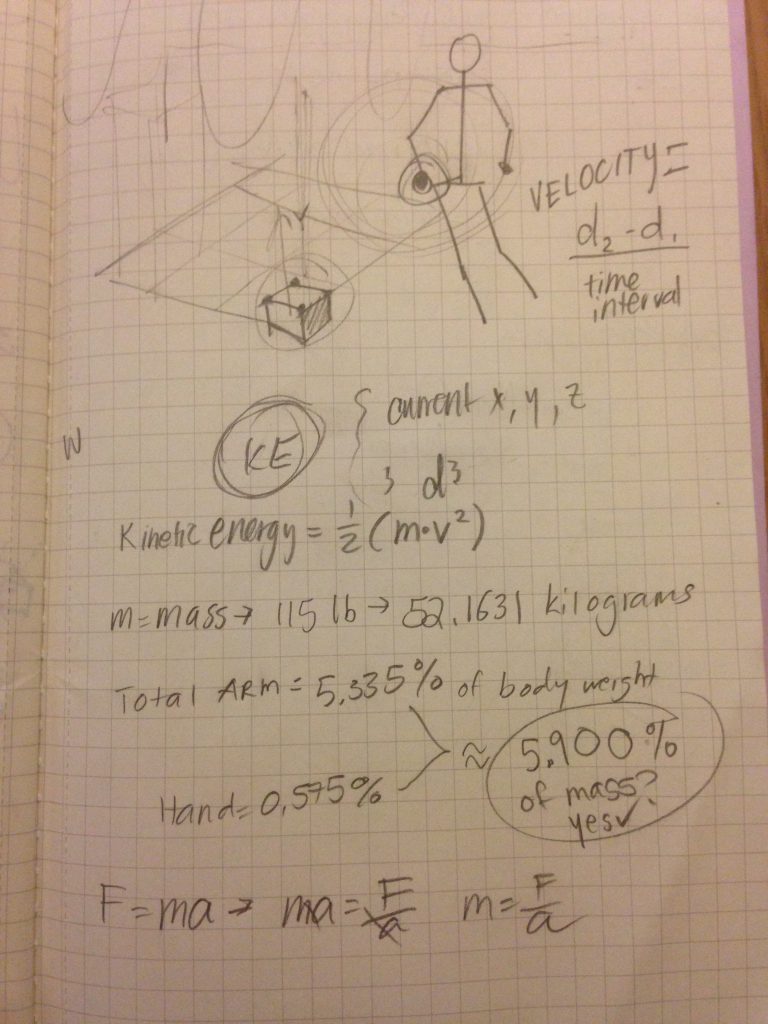 VELOCITY =
d₂ - d₁
time
interval
KE
{ current x, y, z
} d³
W
Kinetic energy = 1/2 (m·v²)
m = mass → 115 lb → 52.1631 kilograms
Total ARM = 5.335% of body weight
≈ 5.900%
of mass?
yes✓
Hand = 0.575%
F = ma → ma = F/a m = F/a